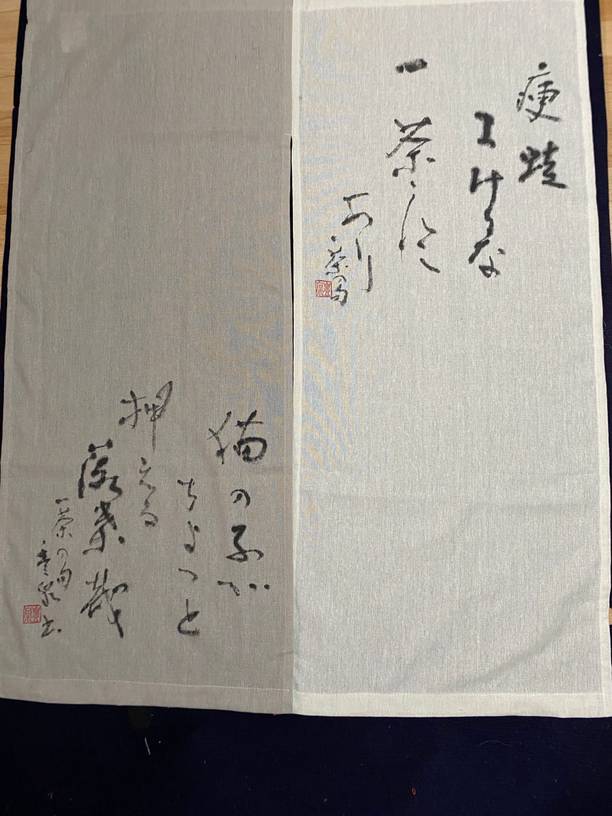 痩蛙
まけるな
一茶これに
あり
一茶句
猫の子が
ちょっと
押える
落葉哉
一茶の句
書